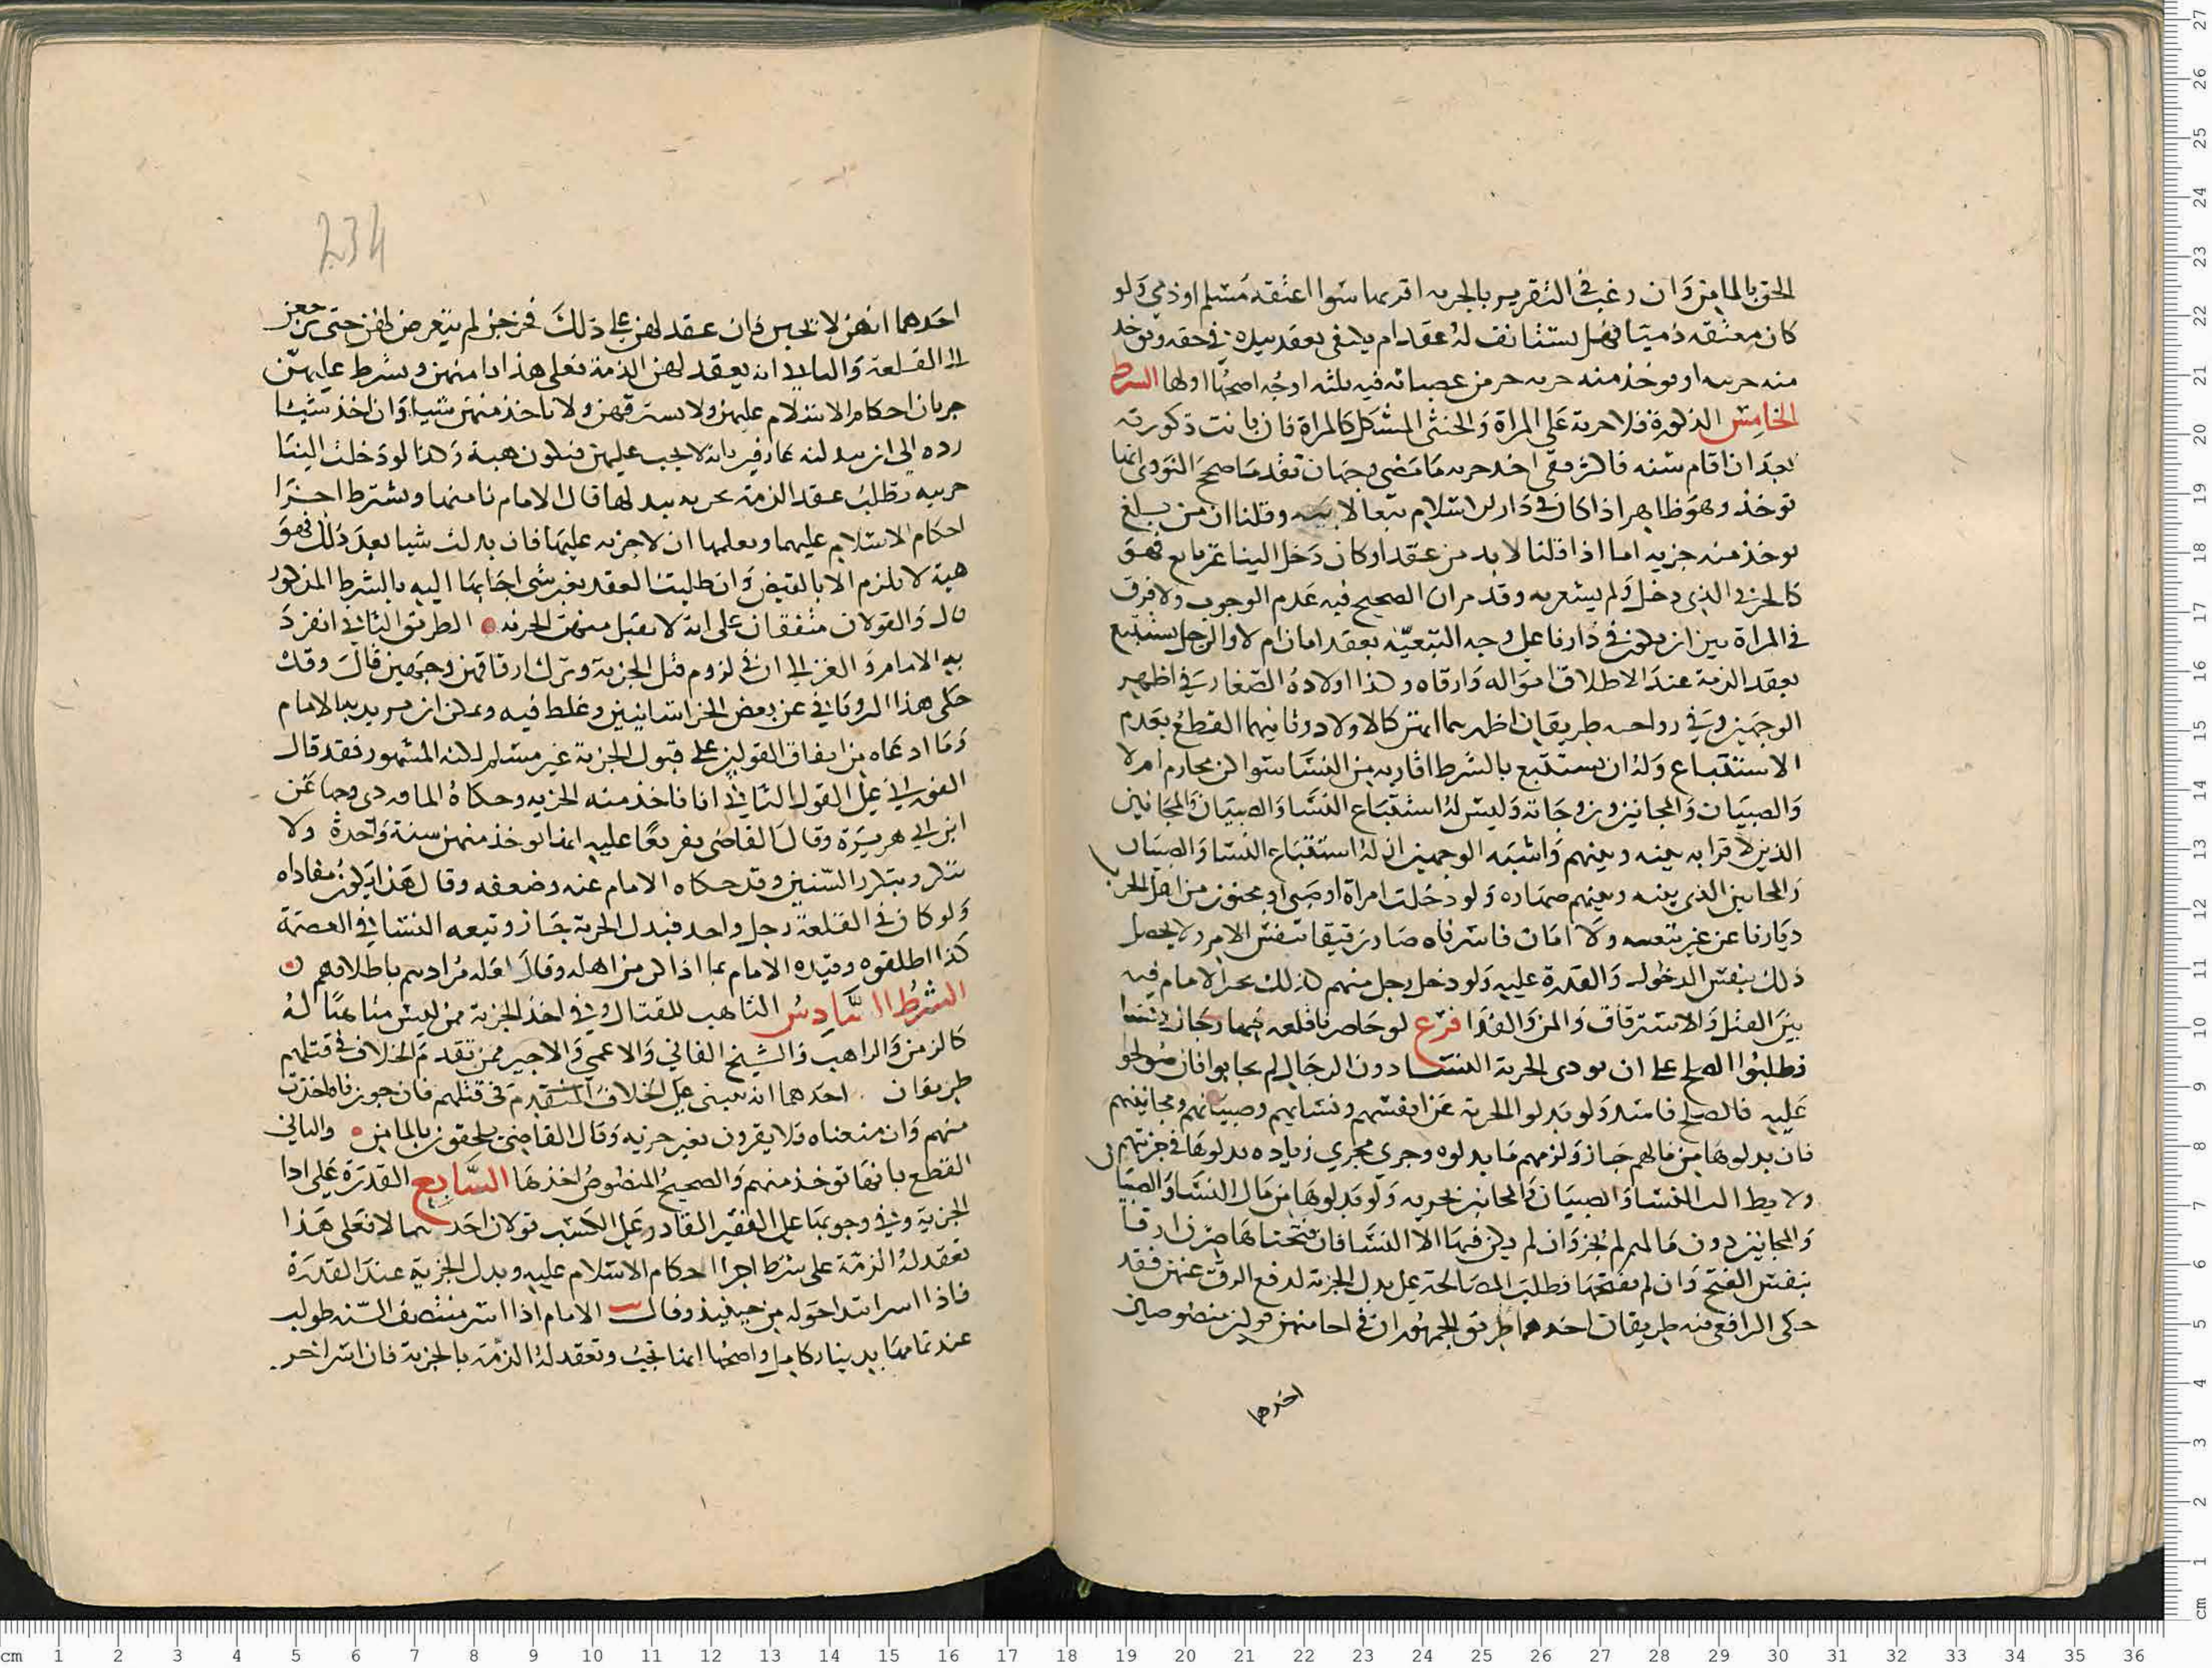 الحق بالمامن وان رغب في التقرير بالجزيه اقر بها سوا اعتقه مسلم او ذمي ولو
كان معتقه ذميا فهل يستانف له عقد ام يكفي بعقد سيده في حقه ويوخذ
منه جزيه او يوخذ منه جزيه عصباته فيه ثلثه اوجه اصحها اولها الشرط
الخامس الذكورة فلا جزية على المراة والخنثى المشكل كالمراة فان بانت ذكورته
بعد ان اقام سنه فاكثر ففي اخذ جزيه ما مضى وجهان تقدما صحح النووي انها
توخذ وهو ظاهر اذا كان في دار الاسلام تبعا لابيه وقلنا ان من بلغ
يوخذ منه جزيه اما اذا قلنا لا بد من عقد او كان دخل الينا غير تابع فهو
كالحربي الذي دخل ولم يشعر به وقد مر ان الصحيح فيه عدم الوجوب ولا فرق
في المراة بين ان يكون في دارنا على وجه التبعيه بعقد امان ام لا والرجل يستتبع
بعقد الذمة عند الاطلاق امواله وارقاه وكذا اولاده الصغار في اظهر
الوجهين وفي زوجاته طريقان اظهرهما انهن كالاولاد وثانيهما القطع بعدم
الاستتباع وله ان يستتبع بالشرط اقاربه من النسا سوا كن محارم ام لا
والصبيان والمجانين وزوجاته وليس له استتباع النسا والصبيان والمجانين
الذين لا قرابه بينه وبينهم واشبه الوجهين ان له استتباع النسا والصبيان
والمجانين الذي بينه وبينهم مصاهره ولو دخلت امراة او صبي او مجنون من اهل الحرب
ديارنا عن غير تبعيه ولا امان فاسرناه صار رقيقا بنفس الاسر ولا يحصل
ذلك بنفس الدخول والقدرة عليه ولو دخل رجل منهم كذلك تخير الامام فيه
بين القتل والاسترقاق والمن والفدا فرع لو حاصرنا قلعه فيها رجال ونسا
فطلبوا الصلح على ان تودى الجزية النسا دون الرجال لم يجابوا فان صولحوا
عليه فالصلح فاسد ولو بذلوا الجزية عن انفسهم ونسايهم وصبيانهم ومجانينهم
فان بذلوها من مالهم جاز ولزمهم ما بذلوه وجرى مجرى زياده بذلوها في جزيتهم
ولا يطالب النسا والصبيان والمجانين بجزيه ولو بذلوها من مال النسا والصبيا
والمجانين دون مالهم لم يجز وان لم يكن فيها الا النسا فان فتحناها صرن ارقا
بنفس الفتح وان لم نفتحها فطلبن المصالحة على بذل الجزية لدفع الرق عنهن فقد
حكى الرافعي فيه طريقان احدهما طريق الجمهور ان في اجابتهن قولين منصوصين
احدهما
234
احدهما انهن لا يجبن فان عقد لهن على ذلك لم نتعرض لهن حتى يرجعن
الى القلعة والثاني انه يعقد لهن الذمة فعلى هذا ايا منهن ونشرط عليهن
جريان احكام الاسلام عليهن ولا يسترقهن ولا ناخذ منهن شيا وان اخذ شيئا
رده الى ان يبذلنه عارفين بانه لا يجب عليهن فيكون هبة وكذا لو دخلت الينا
حربيه وطلبت عقد الذمة بجزيه يبذلها قال الامام نامنها ونشترط اجرا
احكام الاسلام عليهما ويعلمها ان لا جزيه عليها فان بذلت شيا بعد ذلك فهو
هبة لا يلزم الا بالقبض وان طلبت العقد بغير شي اجابها اليه بالشرط المذكور
قال والقولان متفقان على انه لا تقبل منهن الجزيه الطريق الثاني انفرد
به الامام والغزالي ان في لزوم قبول الجزية وترك ارقاقهن وجهين قال وقد
حكى هذا الروياني عن بعض الخراسانيين وغلط فيه ويمكن ان يريد به الامام
وما ادعاه من اتفاق القولين على قبول الجزية غير مسلم لكنه المشهور فقد قال
الفوراني على القول الثاني انا ناخذ منه الجزيه وحكاه الماوردي وجها عن
ابن ابي هريرة وقال القاضي تفريعا عليه انما يوخذ منهن سنة واحدة ولا
يتكرر بتكرر السنين وقد حكاه الامام عنه وضعفه وقال هذا يكون مفاداه
ولو كان في القلعة رجل واحد فبذل الجزية جاز وتبعه النسا في العصمة
كذا اطلقوه وقيده الامام بما اذا كن من اهله وقال لعله مرادهم باطلاقهم
الشرط السادس التاهب للقتال وفي اخذ الجزية ممن ليس متاهبا له
كالزمن والراهب والشيخ الفاني والاعمى والاجير ممن تقدم الخلاف في قتلهم
طريقان احدهما انه يبنى على الخلاف المتقدم في قتلهم فان جوز فاخذت
منهم وان منعناه فلا يقرون بغير جزيه وقال القاضي يلحقون بالمامن والثاني
القطع بانها توخذ منهم والصحيح المنصوص اخذها السابع القدرة على ادا
الجزية وفي وجوبها على الفقير القادر على الكسب قولان احدهما لا فعلى هذا
تعقد له الذمة على شرط اجرا احكام الاسلام عليه وبذل الجزية عند القدرة
فاذا اسر ابتدا حوله من حينيذ وقال الامام اذا اسر منتصف السنه طولب
عند تمامها بدينار كامل واصحها انها تجب وتعقد له الذمة بالجزية فان اسر اخر